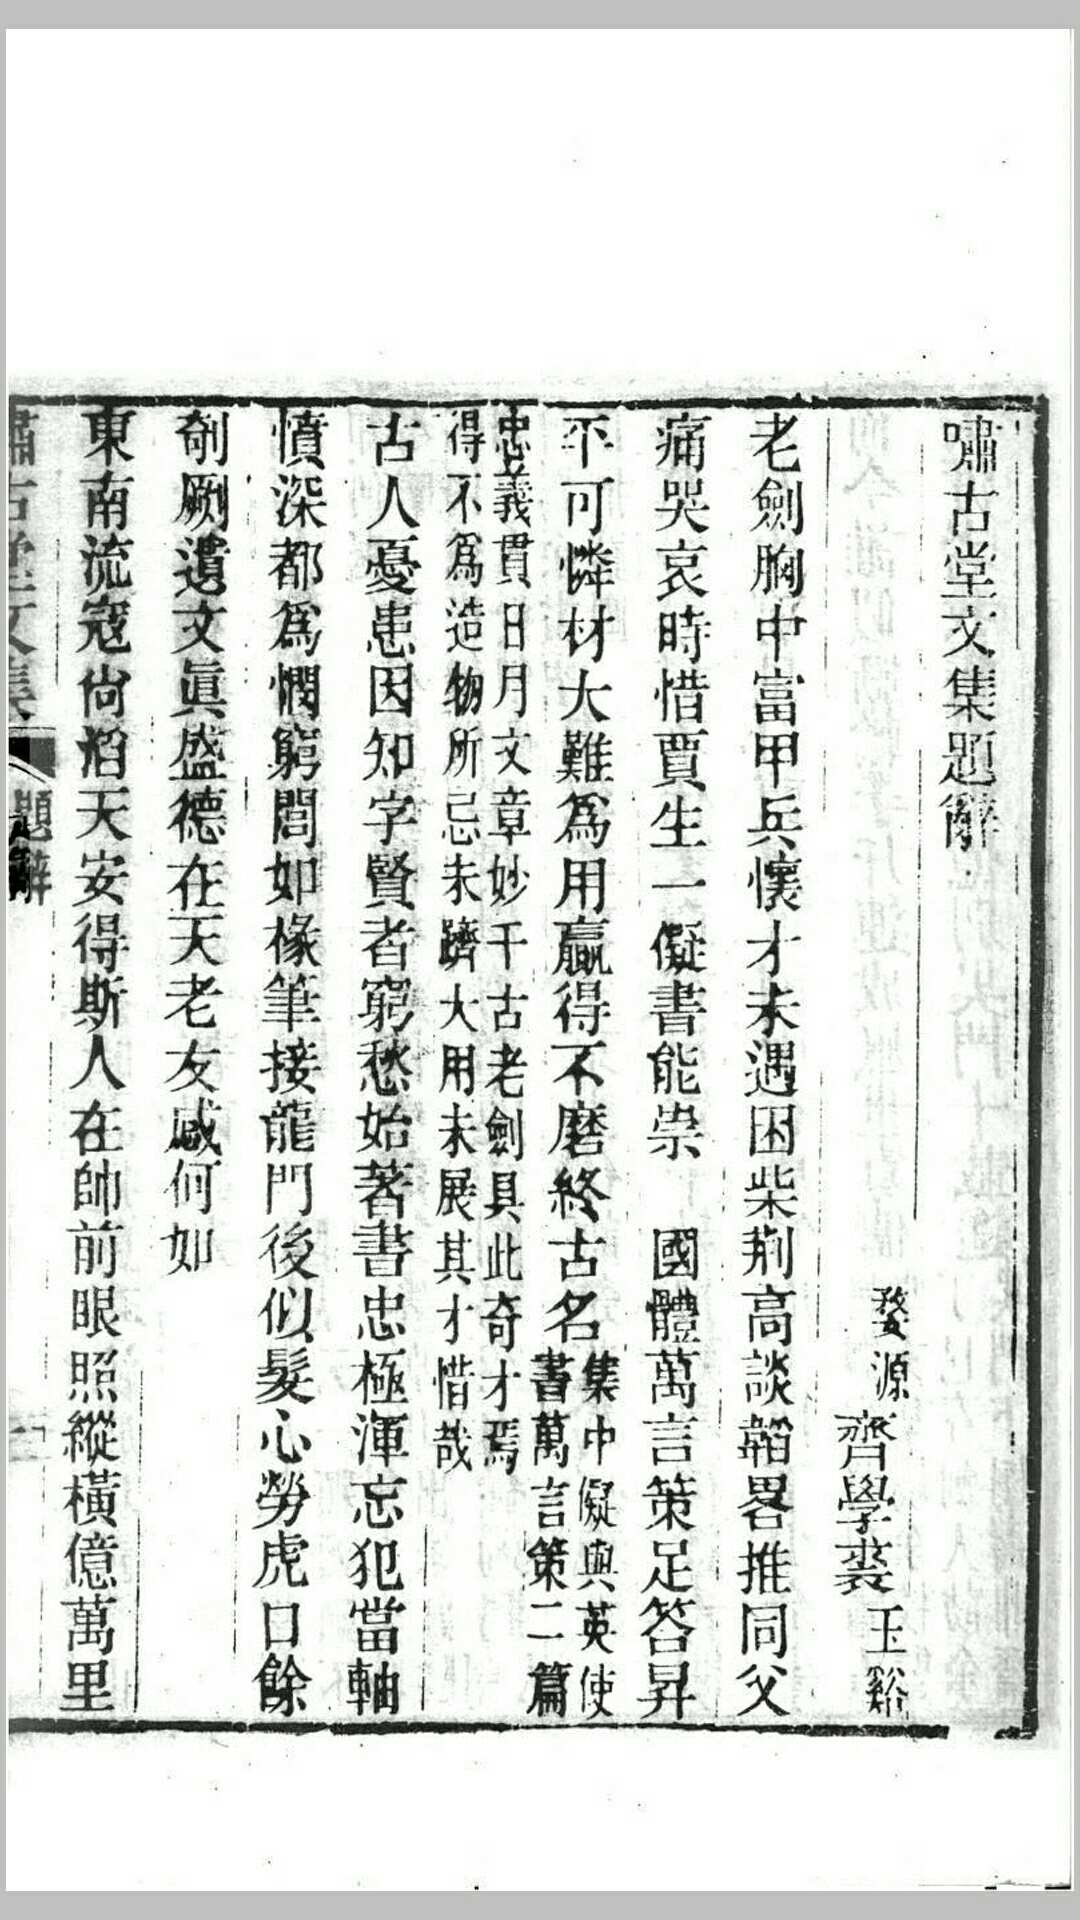 嘯古堂文集題辭
婺源齊學裘玉谿
老劍胸中富甲兵懷才未遇困柴荆高談韜畧推同父
痛哭哀時惜賈生一儗書能祟 國體萬言策足答昇
平可憐材大難爲用贏得不磨終古名集中儗與英使
書萬言策二篇
忠義貫日月文章妙千古老劍具此奇才焉
得不爲造物所忌未躋大用未展其才惜哉
古人憂患因知字賢者窮愁始著書忠極渾忘犯當軸
憤深都爲憫窮閭如椽筆接龍門後似髮心勞虎口餘
剞劂遺文眞盛德在天老友感何如
東南流寇尙滔天安得斯人在帥前眼照縱橫億萬里
嘯古堂文集 題辭 一